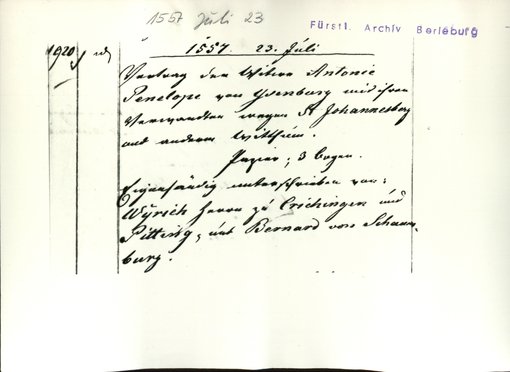 1557 Juli 23
Fürstl. Archiv Berleburg
1920
1557. 23. Juli
Vertrag der Witwe Antonie
Penelope von Ysenburg mit ihren
Verwandten wegen St Johannesberg
und anderen Witthum.
Papier; 3 bogen.
Eigenhändig unterschrieben von:
Wÿrich Herrn zu Crichingen und
Pittingen, und Bernard von Schauen-
burg.